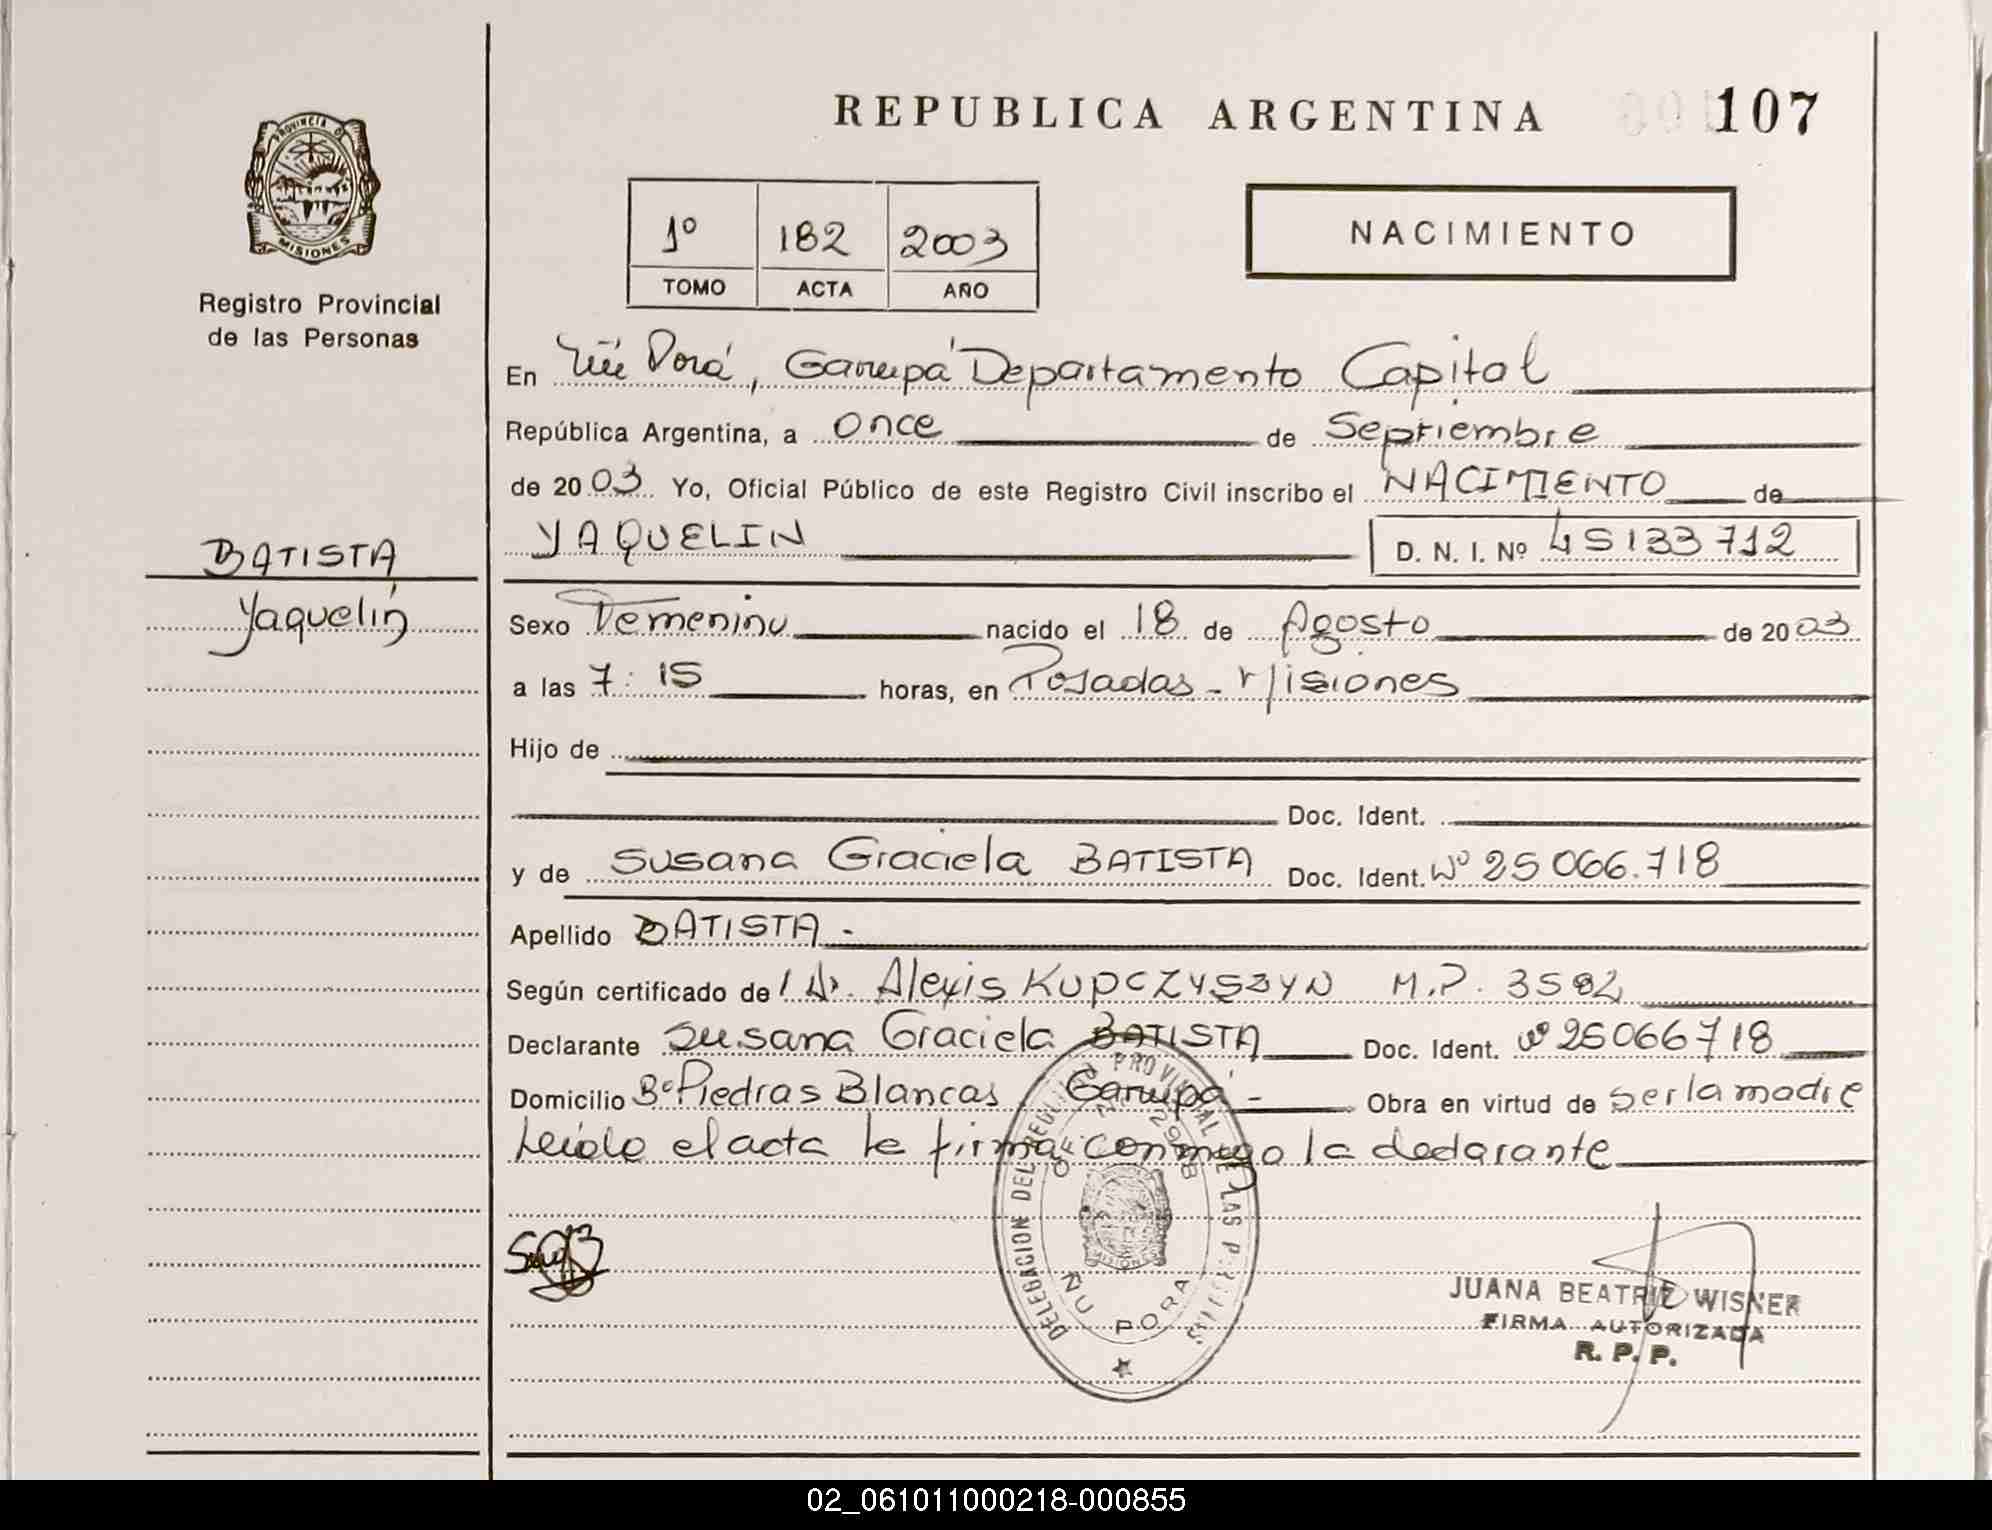 REPUBLICA ARGENTINA 107
PROVINCIA DE MISIONES
Registro Provincial
de las Personas
1º 182 2003
TOMO ACTA AÑO
NACIMIENTO
En Ñú Porá, Garupá Departamento Capital
República Argentina, a once de Septiembre
de 2003 Yo, Oficial Público de este Registro Civil inscribo el NACIMIENTO de
YAQUELIN D. N. I. Nº 45133712
BATISTA
Yaquelin
Sexo Femenino nacido el 18 de Agosto de 2003
a las 7:15 horas, en Posadas - Misiones
Hijo de
Doc. Ident.
y de Susana Graciela BATISTA Doc. Ident. Nº 25066.718
Apellido BATISTA.-
Según certificado de Dr. Alexis KUPCZYSZYN M.P. 3582
Declarante Susana Graciela BATISTA Doc. Ident. Nº 25066718
Domicilio Bº Piedras Blancas Garupá - Obra en virtud de ser la madre
Leido el acta la firma conmigo la declarante
DELEGACION DEL REGISTRO PROVINCIAL DE LAS PERSONAS
ÑU PORA
JUANA BEATRIZ WISNER
FIRMA AUTORIZADA
R. P. P.
02_061011000218-000855